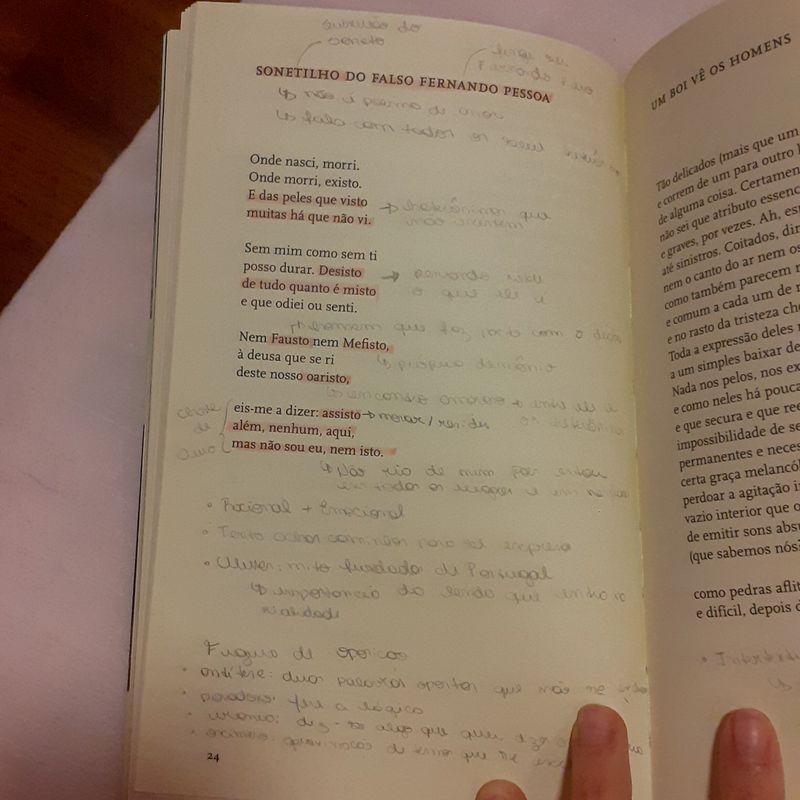 subversão do
soneto
SONETILHO DO FALSO FERNANDO PESSOA
↳ não é poema de amor
↳ fala com todos os seus
Onde nasci, morri.
Onde morri, existo.
E das peles que visto → heterônimos que
muitas há que não vi. não existem
Sem mim como sem ti
posso durar. Desisto →
de tudo quanto é misto o que ele é
e que odiei ou senti.
↱ homem que faz pacto com o diabo
Nem Fausto nem Mefisto,
↳ próprio demônio
à deusa que se ri
deste nosso oaristo,
↳ encontro amoroso → entre ele e
chave de ouro
eis-me a dizer: assisto → morar/residir
além, nenhum, aqui,
mas não sou eu, nem isto.
↳ Não rio de mim por estar
em todos os lugares e em
• Racional + Emocional
• Tenta achar caminhos para tal empresa
• Ulisses: mito fundador de Portugal
↳ importância da lenda que entra na
realidade
Figuras de oposição
• antítese: duas palavras opostas que não se
• paradoxo: fere a lógica
• ironia: diz-se algo que quer dizer
• oxímoro: aproximação de termos que se
24
UM BOI VÊ OS HOMENS
Tão delicados (mais que um
e correm de um para outro
de alguma coisa. Certamen
não sei que atributo essenc
e graves, por vezes. Ah, es
até sinistros. Coitados, dir
nem o canto do ar nem os
como também parecem n
e comum a cada um de n
e no rasto da tristeza che
Toda a expressão deles n
a um simples baixar de
Nada nos pelos, nos ex
e como neles há pouca
e que secura e que ree
impossibilidade de se
permanentes e neces
certa graça melancól
perdoar a agitação i
vazio interior que o
de emitir sons absu
(que sabemos nós?
como pedras aflit
e difícil, depois d